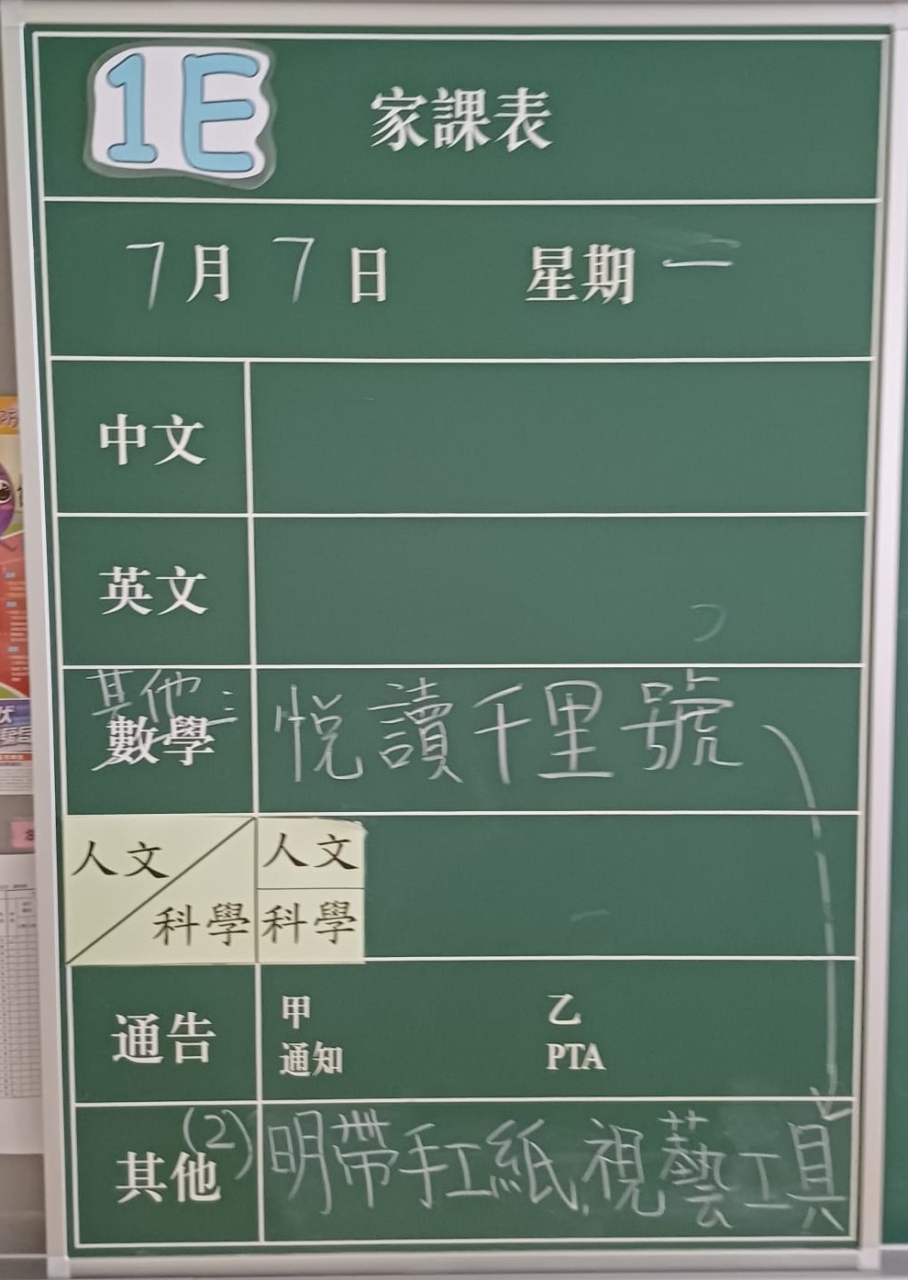 1E 家課表
7月7日 星期一
中文
英文
其他:
數學 悅讀千里號
人文 人文
科學 科學
通告 甲 乙
通知 PTA
其他(2) 明帶手工紙,視藝工具